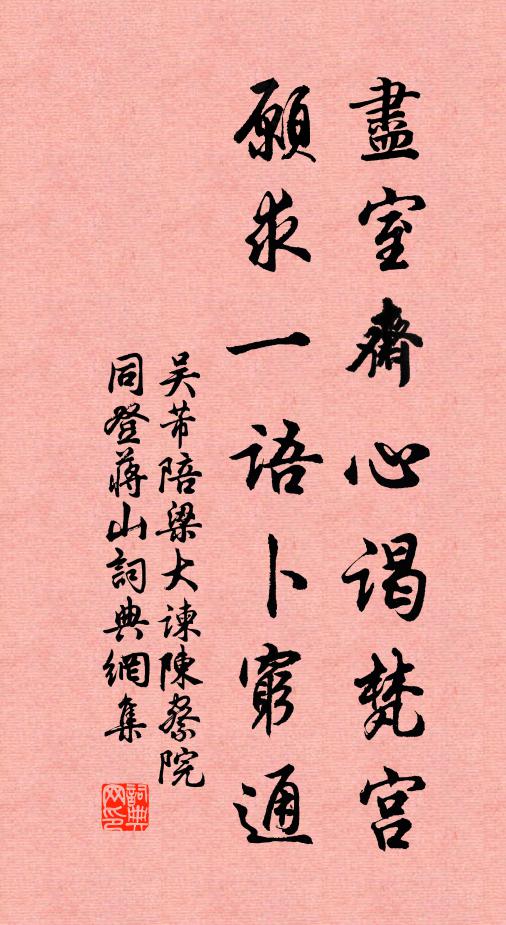 盡室齋心謁梵宮
願求一語卜窮通
吴芾陪梁大諫陳察院
同登蔣山詞典網集
詞典网印